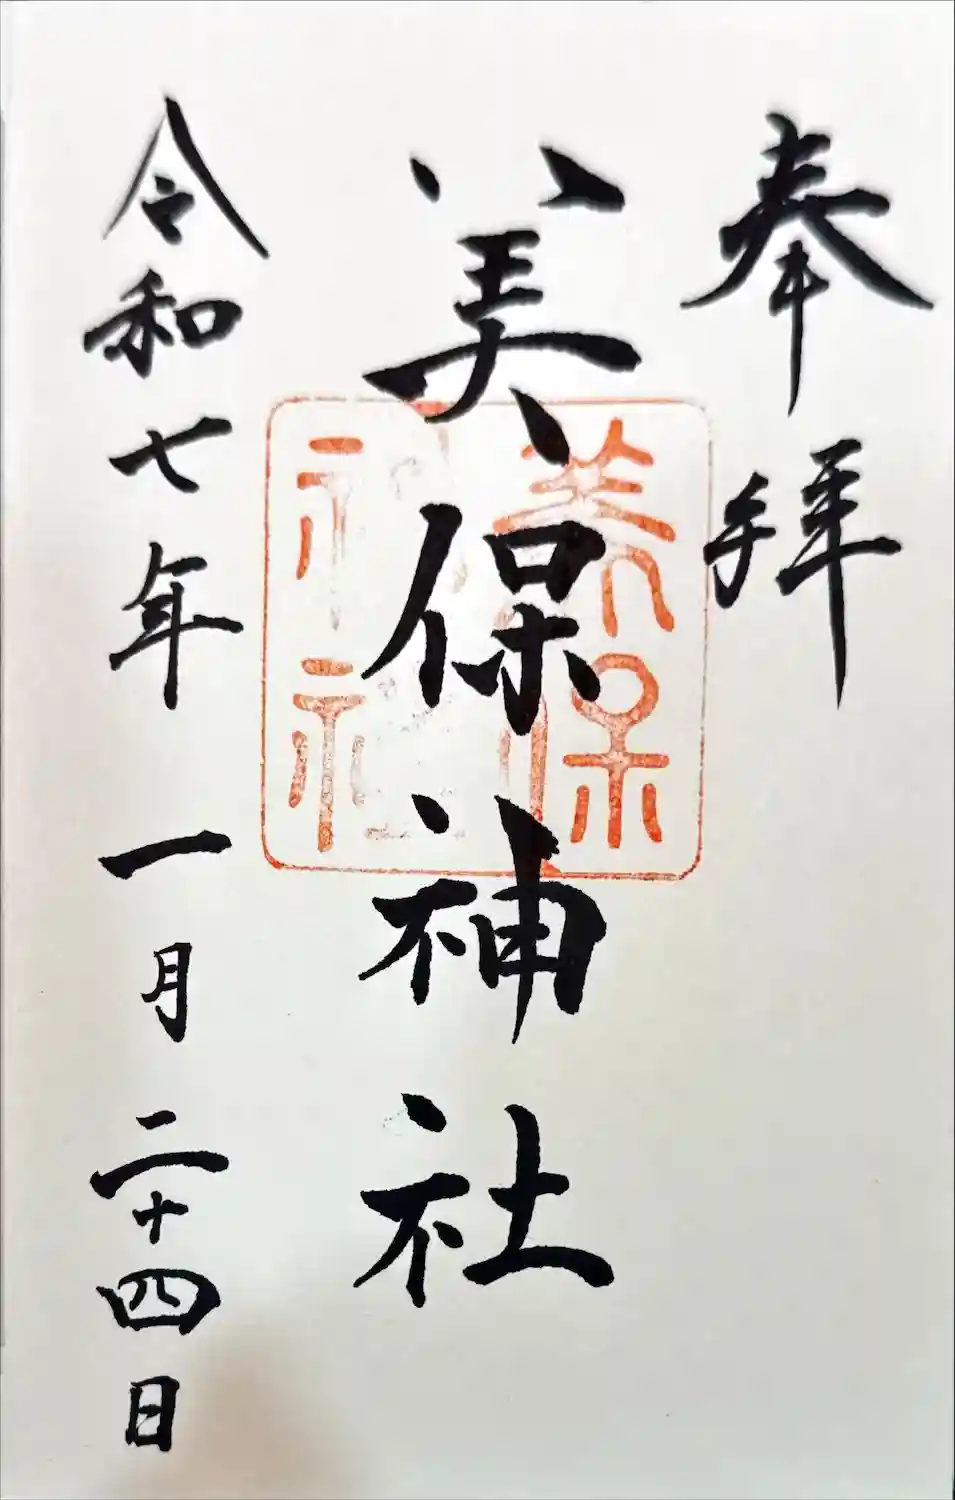 奉拝
美保神社
美保
神社
令和七年一月二十四日